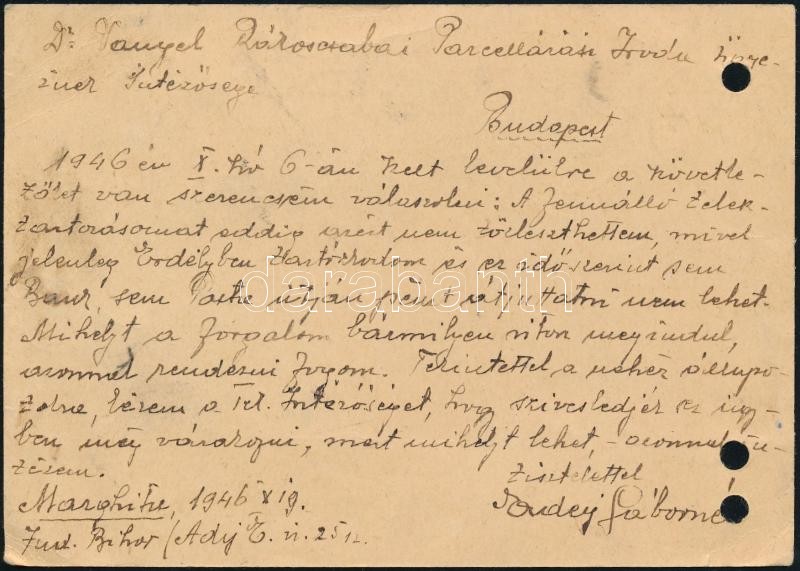 Dr Vangel Rároscsabai Parcellázási Iroda
Intézősége
Budapest
1946 év X. hó 6-án kelt levelükre a követke-
zőket van szerencsém válaszolni: A fennálló telek-
tartozásomat eddig azért nem törleszthettem, mivel
jelenleg Erdélyben tartózkodom és ez időszerint sem
Bank, sem Posta útján pénzt átjuttatni nem lehet.
Mihelyt a forgalom bármilyen úton megindul,
azonnal rendezni fogom. Tekintettel a nehéz állapo-
tokra, kérem a Tek. Intézőséget, hogy sziveskedjék ez ügy-
ben még várakozni, mert mihelyt lehet, azonnal in-
tézem.
Tisztelettel
Marghita, 1946 X 19. Gáborné
Jud. Bihor /Ady E. u. 25
darabanth